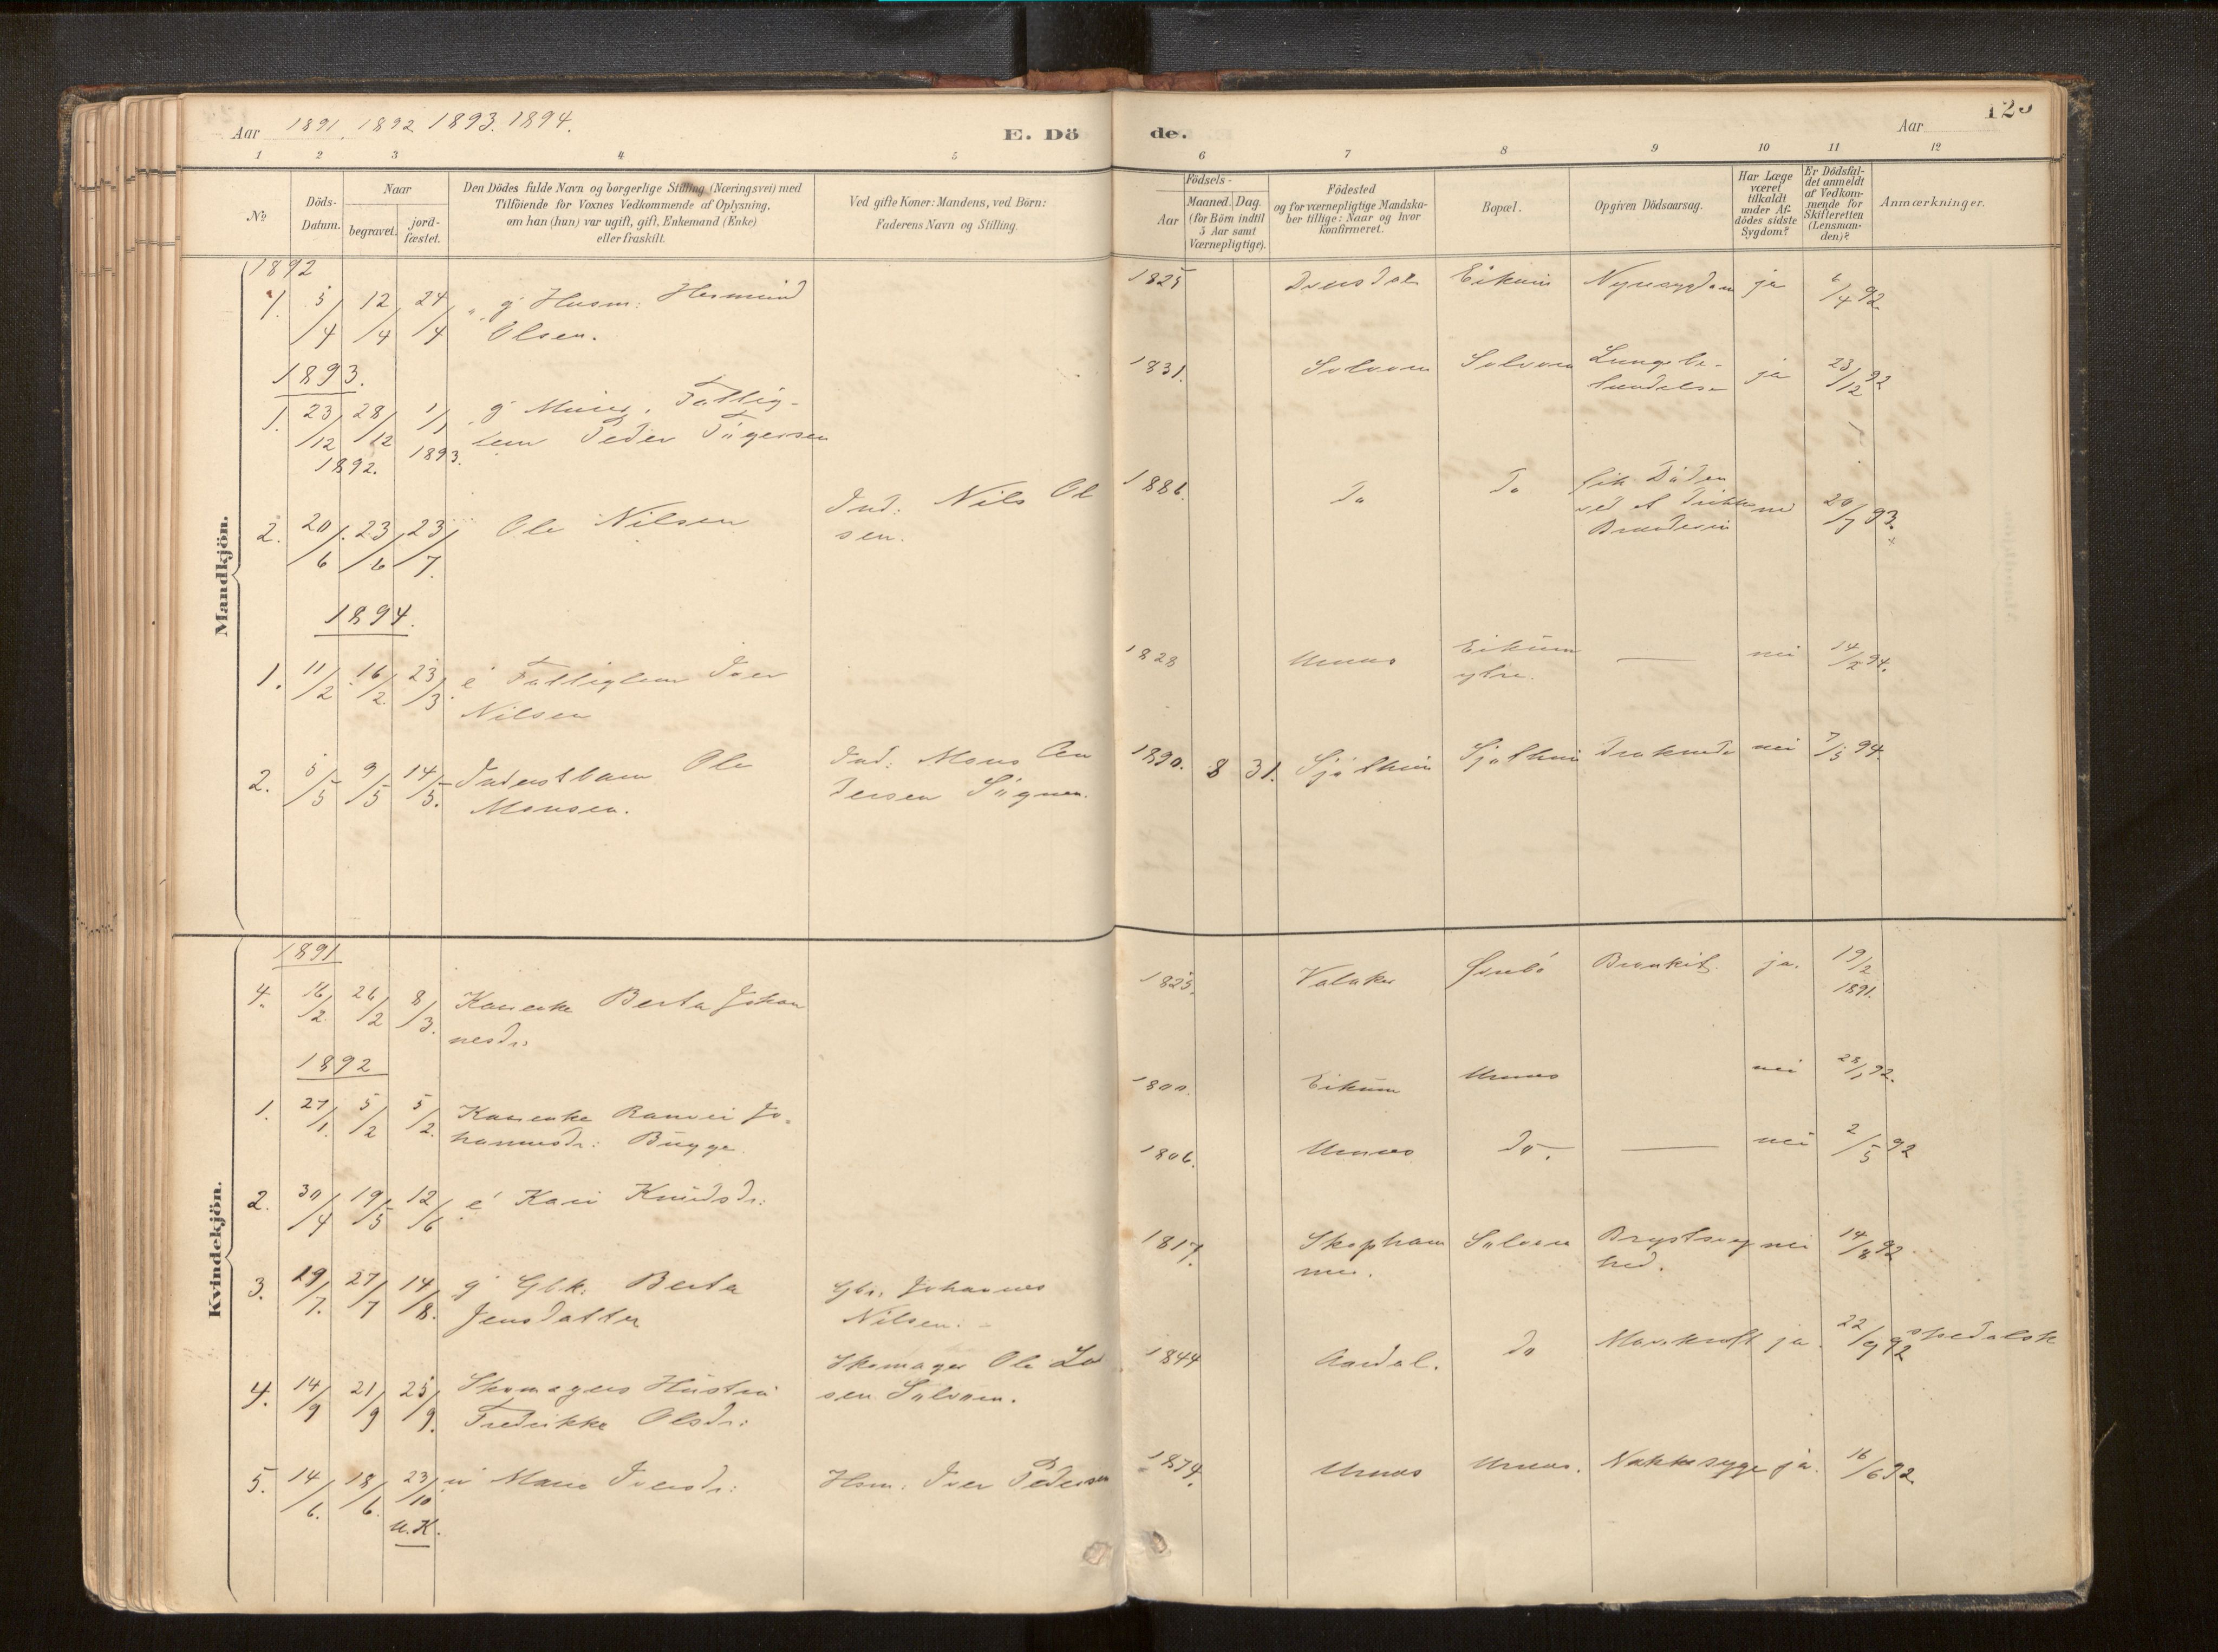 Aar 1891. 1892 1893. 1894.
E. Dö
de.
Aar
1 2 3 4 5
6 7 8 9 10 11 12
No
Döds-
Datum.
Naar
begravet.
jord-
fæstet.
Den Dödes fulde Navn og borgerlige Stilling (Næringsvei) med
Tilföiende for Voxnes Vedkommende af Oplysning,
om han (hun) var ugift, gift, Enkemand (Enke)
eller fraskilt.
Ved gifte Koner: Mandens, ved Börn:
Faderens Navn og Stilling.
Födsels-
Aar
Maaned. Dag.
(for Börn indtil
5 Aar samt
Værnepligtige).
Födested
og for værnepligtige Mandska-
ber tillige: Naar og hvor
konfirmeret.
Bopæl.
Opgiven Dödsaarsag.
Har Læge
været
tilkaldt
under Af-
dödes sidste
Sygdom?
Er Dödsfal-
det anmeldt
af Vedkom-
mende for
Skifteretten
(Lensman-
den)?
Anmærkninger.
Mandkjön.
1892
1. 5/4 12/4 24/4 g Husm: Hermund
Olsen.
1825 Eikum ja 6/4 92
1893.
1. 23/12 28/12 1/1 g Fattig-
lem Peder
1892. 1893.
1831. Solvorn Solvorn Lungebe-
tændelse ja 23/12 92
2. 20/6 23/6 23/7 Ole Nilsen
Ind: Nils Ol
sen.
1886. do do fik Döden
ved at drikke
nei 20/7 93.
1894.
1. 11/2 16/2 23/3 e Fattiglem Iver
Nilsen
1828 Urnes Eikum
ytre. — nei 14/2 94.
2. 5/5 9/5 14/5. Inderstbarn Ole
Monsen.
Ind: Mons An
dersen
1890. 8 31. nei 7/5 94.
Kvindekjön.
1891
4. 16/2 26/2 8/3. Kaarenke Berta Johan
nesdr.
1825. Valaker Bronkit ja. 19/2
1891.
1892
1. 27/1. 5/2 5/2. Kaarenke Ranvei Jo-
hannesdr: Bugge.
1800. Eikum Urnes nei 92.
2. 30/4 19/5 12/6 e Kari Knudsdr:
1806. Urnes do. — nei 2/5 92
3. 19/7. 27/7 14/8. g Gbk. Berta
Jensdatter
Gbr. Johannes
Nilsen.
1817. Solvorn Brystsvag
hed. nei 14/8 92
4. 14/9 21/9 25/9. Skomagers Hustru
Fredrikke Olsdr:
Skomager Ole La
sen Solvorn.
1844 Aardal. do ja. 22/9 92 spedalsk
5. 14/6. 18/6 23/10 u Iversdr:
U.K.
Hsm. Iver Pedersen
1874. Urnes Urnes. Nakkesyge ja. 16/6 92.